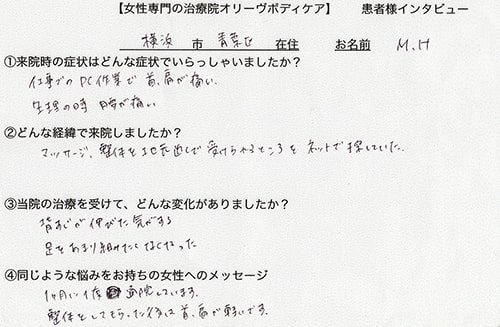 【女性専門の治療院オリーヴボディケア】 患者様インタビュー
横浜 市 青葉区 在住 お名前 M.H
①来院時の症状はどんな症状でいらっしゃいましたか？
仕事でのPC作業で首、肩が痛い。
生理の時 腰が痛い
②どんな経緯で来院しましたか？
マッサージ、整体を地元近くで受けられるところをネットで探していた。
③当院の治療を受けて、どんな変化がありましたか？
背すじが伸びた気がする
足をあまり組みたくなくなった
④同じような悩みをお持ちの女性へのメッセージ
1ヶ月に1度 通院しています。
整体をしてもらった後は首、肩が軽いです。